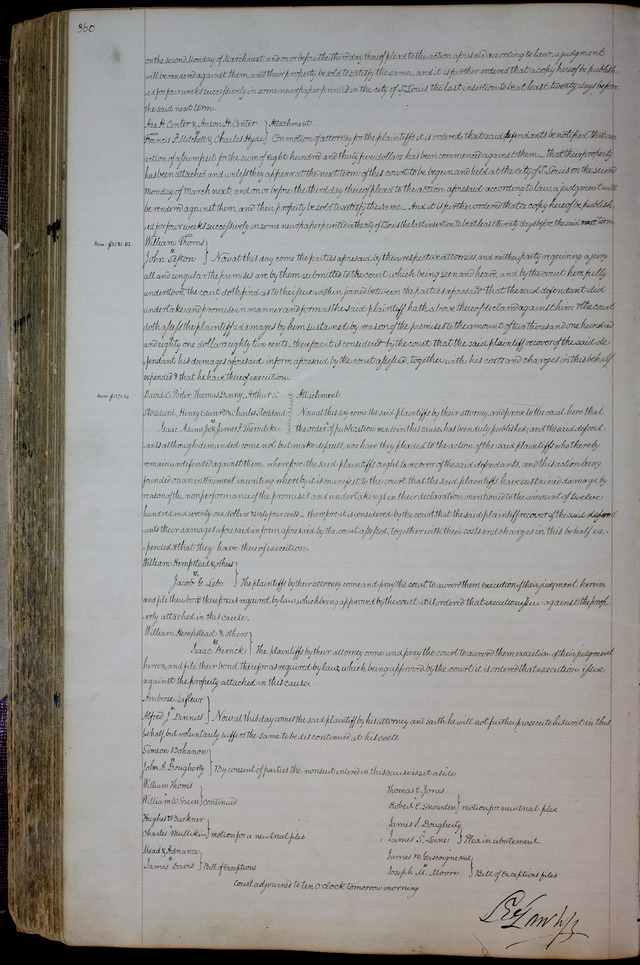 360
on the second Monday of March next, and on or before the third day thereof plead to the action aforesaid according to law, a judgment
will be rendered against them, and their property be sold to satisfy the same. and it is further ordered that a copy hereof be publish-
ed for four weeks successively in some newspaper printed in the city of St Louis the last insertion to be at least twenty days before
the said next term.
Asa H. Center & Anson H. Center } Attachment.
vs
Francis P. Mitchell & Charles Hyde } On motion of attorney for the plaintiffs it is ordered that said defendants be notified that an
action of assumpsit for the sum of eight hundred and thirty five dollars has been commenced against them – that their property
has been attached, and unless they appear at the next term of this court to be begun and held at the city of St Louis on the second
Monday of March next, and on or before the third day thereof plead to the action aforesaid according to law, a judgment will
be rendered against them, and their property be sold to satisfy the same – And it is further ordered that a copy hereof be publish-
ed for four weeks successively in some newspaper printed in the city of St Louis the last insertion to be at least twenty days before the said next term
William Thoms
vs
$2181.82
John Sefton } Now at this day come the parties aforesaid by their respective attornies, and neither party requiring a jury
all and singular the premises are by them submitted to the court which being seen and heard, and by the court here fully
understood, the court doth find as to the issue within joined between the parties aforesaid that the said defendant did
undertake and promise in manner and form as the said plaintiff hath above thereof declared against him & the court
doth assess the plaintiffs damages by him sustained by reason of the premises to the amount of two thousand one hundred
and eighty one dollars eighty two cents – therefore it is considered by the court that the said plaintiff recover of the said de-
fendant his damages aforesaid in form aforesaid by the court assessed, together with his costs and charges in this behalf
expended & that he have thereof execution.
David C. Porter, Thomas Denny, Arthur S. } Attachment.
Stoddard, Henry Edwards & Charles Stoddard } Now at this day come the said plaintiffs by their attorney, and prove to the court here that
vs
Isaac Adams Jr & James P. Thorndike } the order of publication made in this cause has been duly published, and the said defend-
ants although demanded come not but make default, nor have they pleaded to the action of the said plaintiffs who thereby
remain undefended against them. wherefore the said plaintiffs ought to recover of the said defendants, and this action being
founded on an instrument in writing whereby it is manifest to the court that the said plaintiffs have sustained damage by
reason of the nonperformance of the promises and undertakings in their declaration mentioned to the amount of twelve
hundred and seventy one dollars sixty four cents – therefore it is considered by the court that the said plaintiffs recover of the said defend
ants their damages aforesaid in form aforesaid by the court assessed, together with their costs and charges in this behalf ex-
pended & that they have thereof execution.
William Hempstead & others
vs
Jacob G. Lebo } The plaintiffs by their attorney come and pray the court to award them execution of their judgment herein
and file their bond therefor as required by law, which being approved by the court it is ordered that execution issue against the prop-
erty attached in this cause.
William Hempstead & others
vs
Isaac Herrick } The plaintiffs by their attorney come and pray the court to award them execution of their judgment
herein, and file their bond therefor as required by law, which being approved by the court it is ordered that execution issue
against the property attached in this cause.
Ambrose Lafleur
vs
Alfred J. Dennis } Now at this day comes the said plaintiff by his attorney and saith he will not further prosecute his writ in this
behalf, but voluntarily suffers the same to be discontinued at his costs.
Simeon Bohanon
vs
John A. Dougherty } By consent of parties the nonsuit entered in this cause is set aside.
William Thoms
vs
William W. Green } continued
Hughes & Buckner
vs
Charles Mullikin } motion for a new trial filed
Mead & Adriance
vs
James Davis } Bill of exceptions
Thomas E. Jones
vs
Robert E. Snowden } motion for new trial filed
James S. Dougherty
vs
James S. Lane } Plea in abatement
James M. Gascoigne
vs
Joseph M. Moore } Bill of exceptions filed
Court adjourned to ten O'clock tomorrow morning